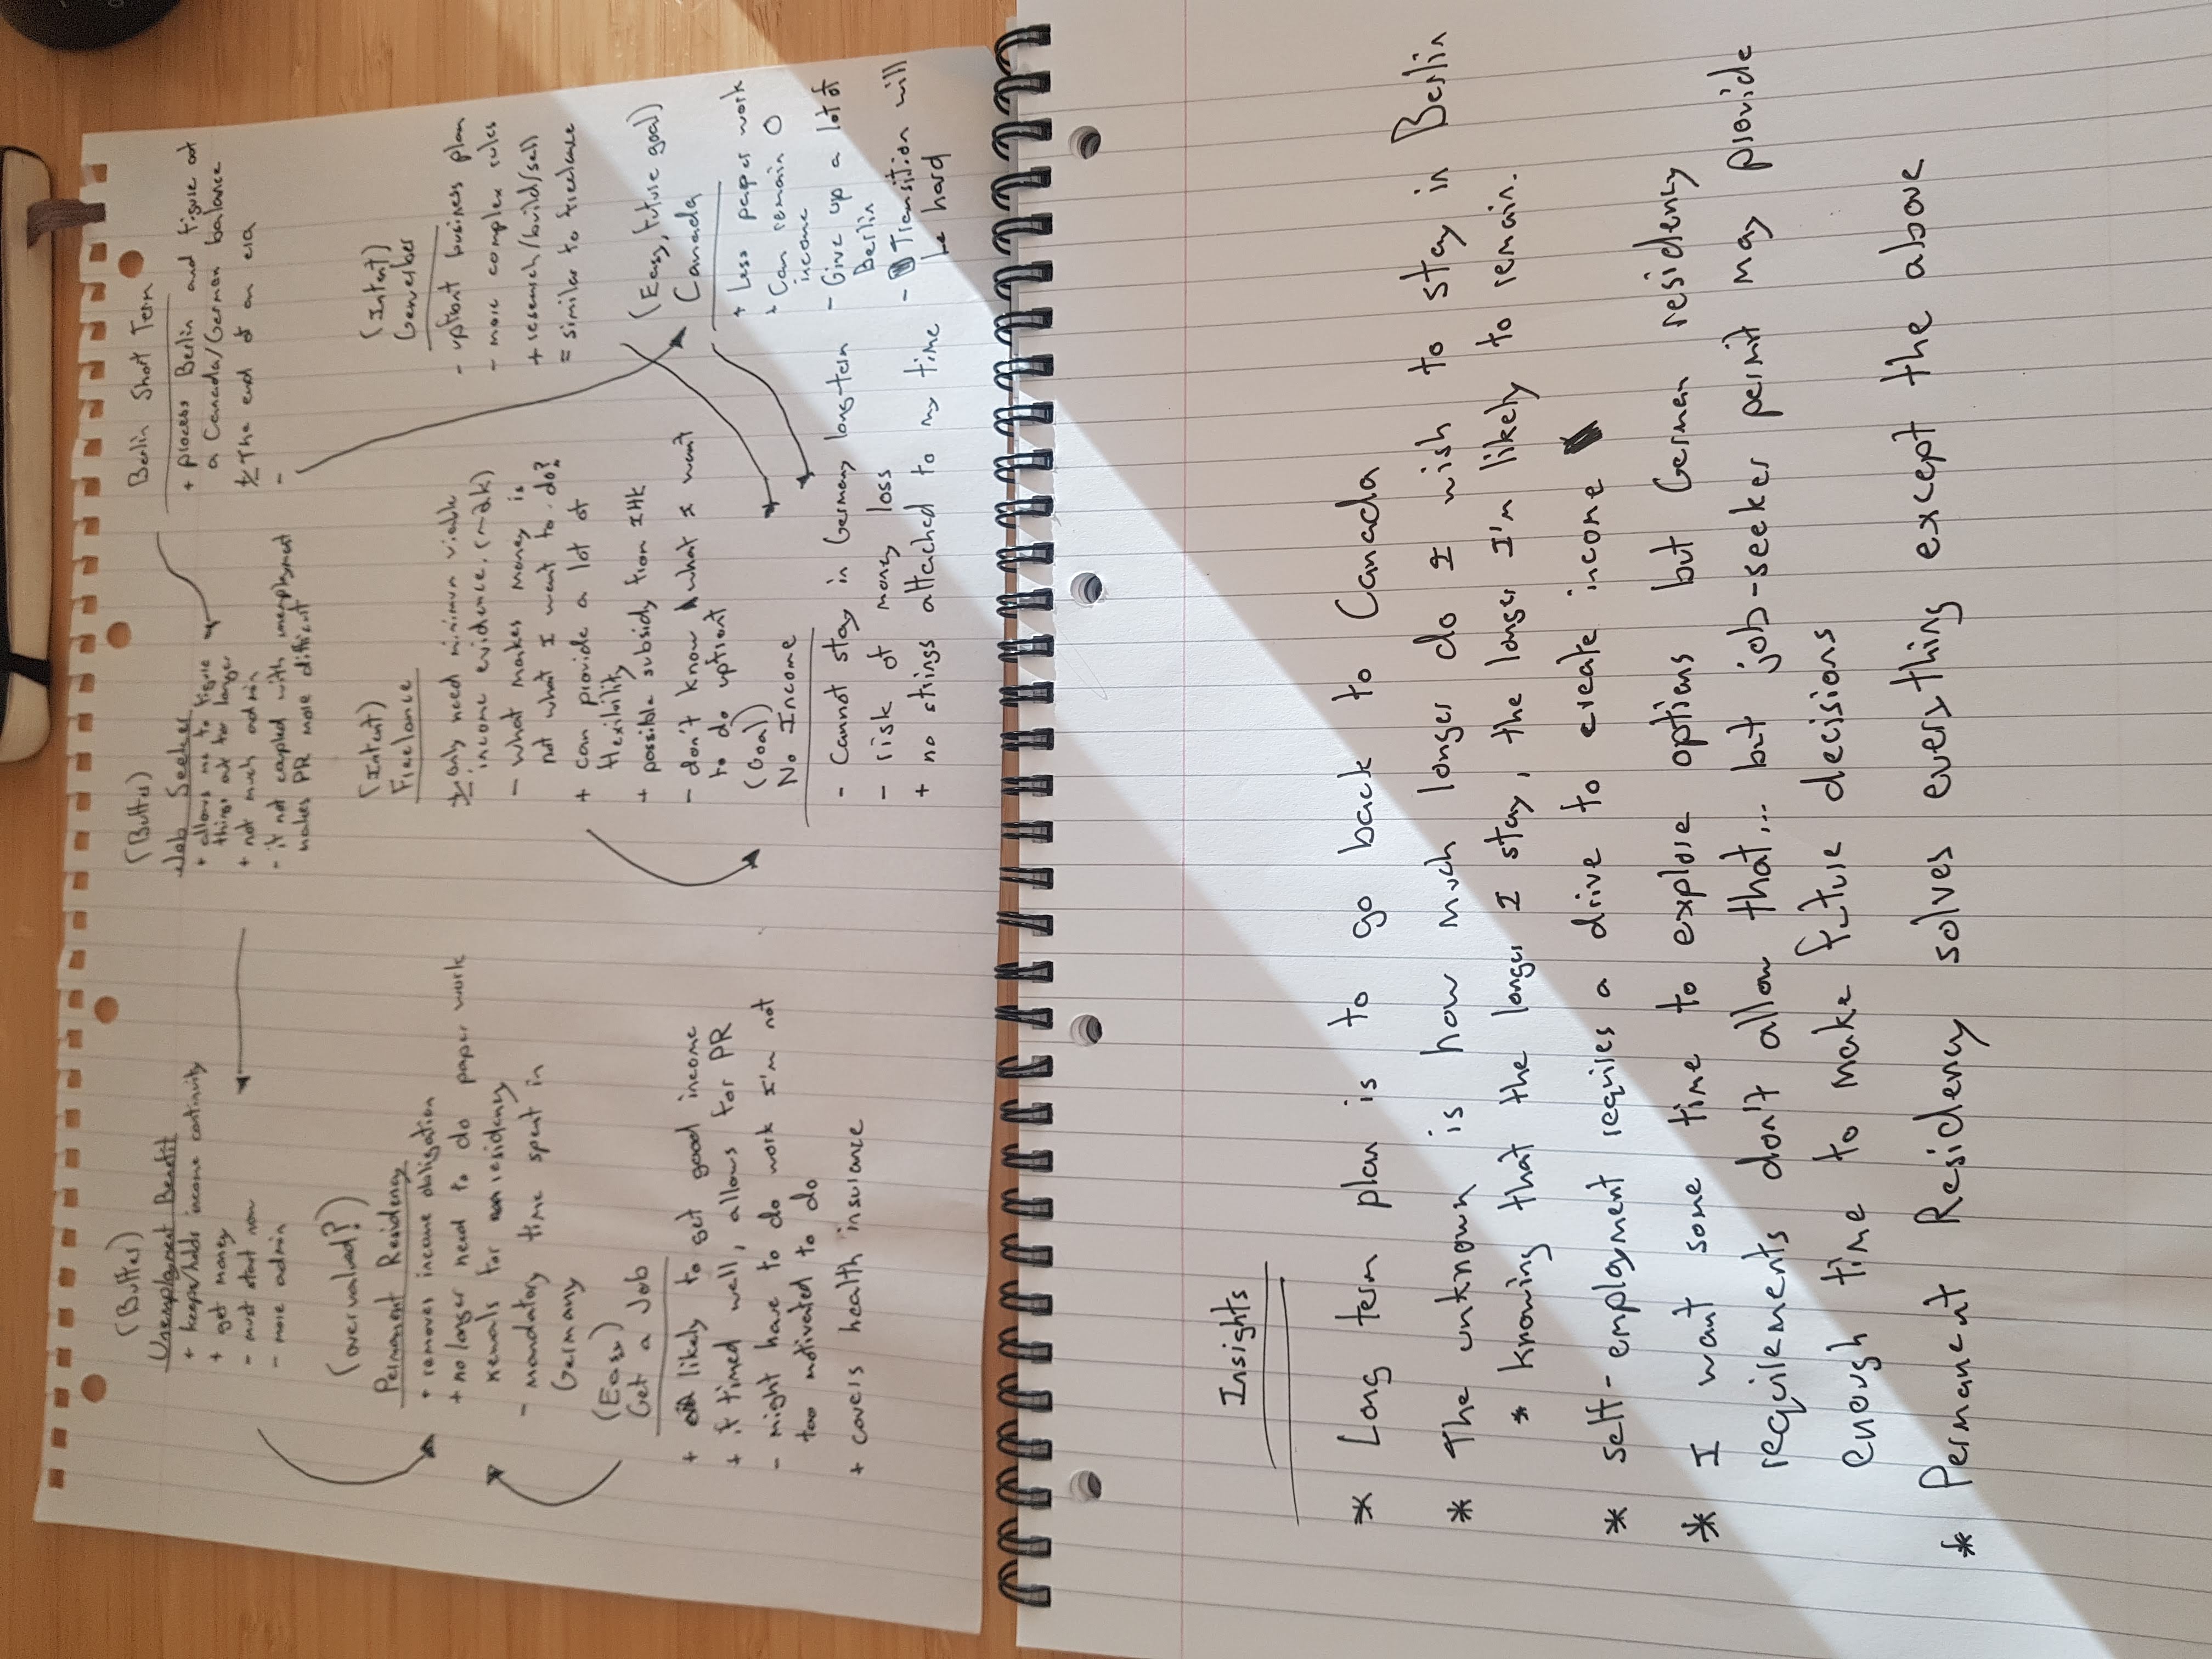 (Buffer)
Unemployment Benefit
+ keeps/holds income continuity
+ get money
- must start now
- more admin
(Buffer)
Job Seeker
+ allows me to figure
things out for longer
+ not much admin
- if not coupled with unemployment
makes PR more difficult
Berlin Short Term
+ process Berlin and figure out
a Canada/German balance
± The end of an era
-
(overvalued?)
Permanent Residency
+ removes income obligation
+ no longer need to do paper work
renewals for residency
- mandatory time spent in
Germany
(Intent)
Freelance
± only need minimum viable
income evidence. (~2k)
- what makes money is
not what I want to do?
+ can provide a lot of
flexibility
+ possible subsidy from IHK
- don't know what I want
to do upfront
(Intent)
Gewerbe
- upfront business plan
- more complex rules
+ research/build/sell
= similar to freelance
(Easy)
Get a Job
+ likely to get good income
+ if timed well, allows for PR
- might have to do work I'm not
too motivated to do
+ covers health insurance
(Goal)
No Income
- Cannot stay in Germany long-term
- risk of money loss
+ no strings attached to my time
(Easy, future goal)
Canada
+ Less paper work
+ Can remain 0
income
- Give up a lot of
Berlin
- Transition will
be hard
Insights
* Long term plan is to go back to Canada
* The unknown is how much longer do I wish to stay in Berlin
* knowing that the longer I stay, the longer I'm likely to remain.
* self-employment requires a drive to create income
* I want some time to explore options but German residency
requirements don't allow that... but job-seeker permit may provide
enough time to make future decisions
* Permanent Residency solves everything except the above